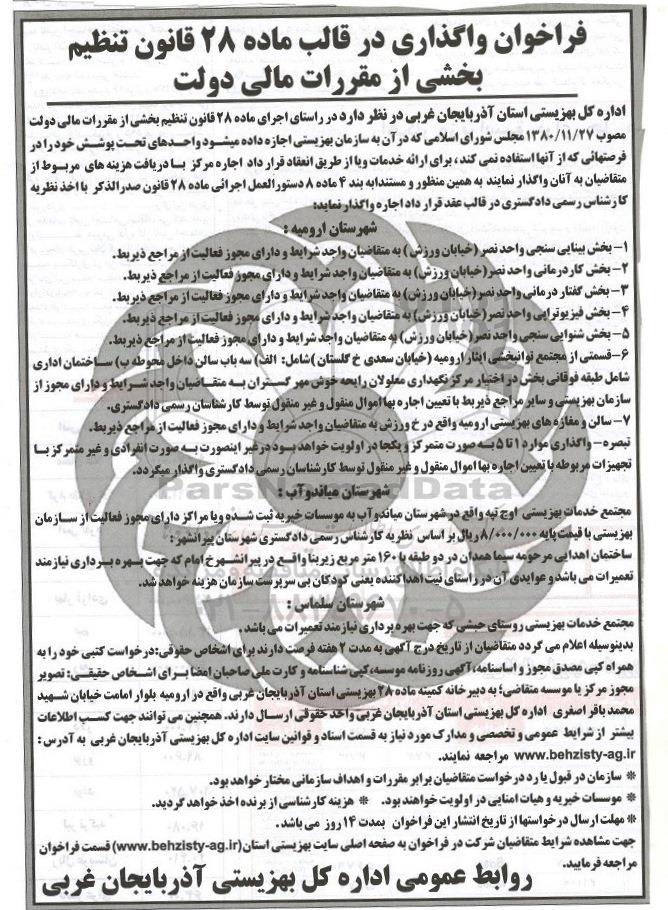 فراخوان واگذاری در قالب ماده ۲۸ قانون تنظیم
بخشی از مقررات مالی دولت
اداره کل بهزیستی استان آذربایجان غربی در نظر دارد در راستای اجرای ماده ۲۸ قانون تنظیم بخشی از مقررات مالی دولت
مصوب ۱۳۸۰/۱۱/۲۷ مجلس شورای اسلامی که در آن به سازمان بهزیستی اجازه داده میشود واحدهای تحت پوشش خود را در
فرصتهائی که از آنها استفاده نمی کند، برای ارائه خدمات ویا از طریق انعقاد قرار داد اجاره مرکز با دریافت هزینه های مربوط از
متقاضیان به آنان واگذار نمایند به همین منظور و مستندابه بند ۴ ماده ۸ دستورالعمل اجرائی ماده ۲۸ قانون صدرالذکر با اخذ نظریه
کارشناس رسمی دادگستری در قالب عقد قرار داد اجاره واگذار نماید:
شهرستان ارومیه :
۱- بخش بینایی سنجی واحد نصر(خیابان ورزش) به متقاضیان واجد شرایط و دارای مجوز فعالیت از مراجع ذیربط.
۲- بخش کاردرمانی واحد نصر(خیابان ورزش) به متقاضیان واجد شرایط و دارای مجوز فعالیت از مراجع ذیربط.
۳- بخش گفتار درمانی واحد نصر(خیابان ورزش) به متقاضیان واجد شرایط و دارای مجوز فعالیت از مراجع ذیربط.
۴- بخش فیزیوتراپی واحد نصر(خیابان ورزش) به متقاضیان واجد شرایط و دارای مجوز فعالیت از مراجع ذیربط.
۵- بخش شنوایی سنجی واحد نصر(خیابان ورزش) به متقاضیان واجد شرایط و دارای مجوز فعالیت از مراجع ذیربط.
۶-قسمتی از مجتمع توانبخشی ایثار ارومیه (خیابان سعدی خ گلستان )شامل: الف) سه باب سالن داخل محوطه ب) ساختمان اداری
شامل طبقه فوقانی بخش در اختیار مرکز نگهداری معلولان رایحه خوش مهر گستران به متقاضیان واجد شرایط و دارای مجوز از
سازمان بهزیستی و سایر مراجع ذیربط با تعیین اجاره بها اموال منقول و غیر منقول توسط کارشناسان رسمی دادگستری.
۷- سالن و مغازه های بهزیستی ارومیه واقع در خ ورزش به متقاضیان واجد شرایط و دارای مجوز فعالیت از مراجع ذیربط.
تبصره- واگذاری موارد ۱ تا ۵ به صورت متمرکز و یکجا در اولویت خواهد بود در غیر اینصورت به صورت انفرادی و غیر متمرکز با
تجهیزات مربوطه با تعیین اجاره بها اموال منقول و غیر منقول توسط کارشناسان رسمی دادگستری واگذار میگردد.
شهرستان میاندوآب :
مجتمع خدمات بهزیستی اوچ تپه واقع در شهرستان میاندوآب به موسسات خیریه ثبت شده ویا مراکز دارای مجوز فعالیت از سازمان
بهزیستی با قیمت پایه ۸/۰۰۰/۰۰۰ریال بر اساس نظریه کارشناس رسمی دادگستری شهرستان پیرانشهر:
ساختمان اهدایی مرحومه سیما همدان در دو طبقه با ۱۶۰ متر مربع زیربنا واقع در پیرانشهر خ امام که جهت بهره برداری نیازمند
تعمیرات می باشد و عوایدی آن در راستای ثبت اهدا کننده یعنی کودکان بی سرپرست سازمان هزینه خواهد شد.
شهرستان سلماس :
مجتمع خدمات بهزیستی روستای حبشی که جهت بهره برداری نیازمند تعمیرات می باشد.
بدینوسیله اعلام می گردد متقاضیان از تاریخ درج آگهی به مدت ۲ هفته فرصت دارند برای اشخاص حقوقی:درخواست کتبی خود را به
همراه کپی مصدق مجوز و اساسنامه،آگهی روزنامه موسسه،کپی شناسنامه و کارت ملی صاحبان امضا برای اشخاص حقیقی: تصویر
مجوز مرکز یا موسسه متقاضی؛ به دبیرخانه کمیته ماده ۲۸ بهزیستی استان آذربایجان غربی واقع در ارومیه بلوار امامت خیابان شهید
محمد باقر اصغری اداره کل بهزیستی استان آذربایجان غربی واحد حقوقی ارسال دارند. همچنین می توانند جهت کسب اطلاعات
بیشتر از شرایط عمومی و تخصصی و مدارک مورد نیاز به قسمت اسناد و قوانین سایت اداره کل بهزیستی آذربایجان غربی به آدرس :
www.behzisty-ag.ir مراجعه نمایند.
* سازمان در قبول یا رد درخواست متقاضیان برابر مقررات و اهداف سازمانی مختار خواهد بود.
* موسسات خیریه و هیات امنایی در اولویت خواهند بود. * هزینه کارشناسی از برنده اخذ خواهد گردید.
* مهلت ارسال درخواستها از تاریخ انتشار این فراخوان بمدت ۱۴ روز می باشد.
جهت مشاهده شرایط متقاضیان شرکت در فراخوان به صفحه اصلی سایت بهزیستی استان(www.behzisty-ag.ir) قسمت فراخوان
مراجعه فرمایید.
روابط عمومی اداره کل بهزیستی آذربایجان غربی
ParsNamadData